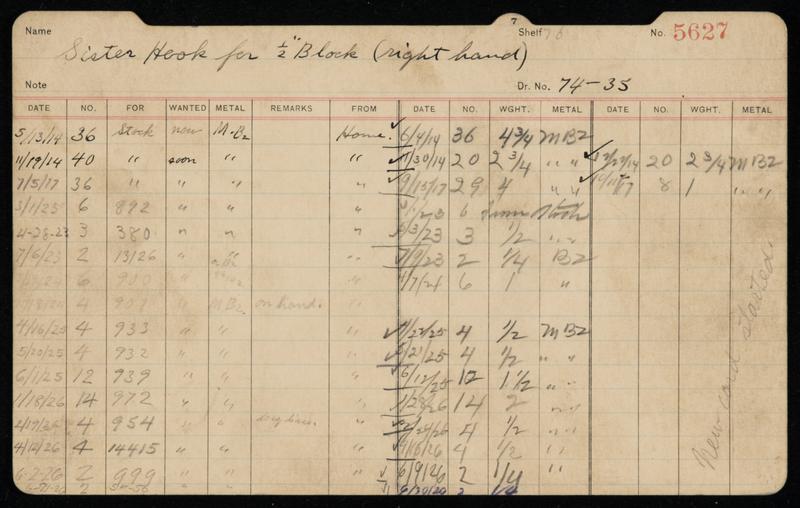 Name 7 Shelf 76 No. 5627
Sister Hook for ½" Block (right hand)
Note Dr. No. 74-35
DATE NO. FOR WANTED METAL REMARKS FROM DATE NO. WGHT. METAL DATE NO. WGHT. METAL
5/13/14 36 Stock now M-B2 Home. ✓ 6/4/14 36 4 3/4 M B2
11/19/14 40 " soon " " ✓ 11/30/14 20 2 3/4 " " ✓ 12/27/14 20 2 3/4 M B2
7/5/17 36 " " " " 9/13/17 29 4 " " ✓ 8 1 " "
3/1/23 6 892 " " " 6 from Stock
4-28-23 3 380 " " " 5/3/23 3 1/2 " "
7/6/23 2 13126 " " " 7/9/23 2 1/4 B2
6 900 " " 4/7/24 6 1 "
4 902 " M B2 on hand. "
4/16/25 4 933 " " " ✓ 4/22/25 4 1/2 M B2
5/20/25 4 932 " " " ✓ 5/21/25 4 1/2 " "
6/1/25 12 939 " " " ✓ 6/12/25 12 1 1/2 " "
1/18/26 14 972 " " " 1/28/26 14 2 " "
4 954 " " " 4 1/2 " "
4/12/26 4 14415 " " " 4/16/26 4 1/2 " "
6-2-26 2 999 " " " ✓ 6/9/26 2 1/4 "
2 2 1/4
New card started.